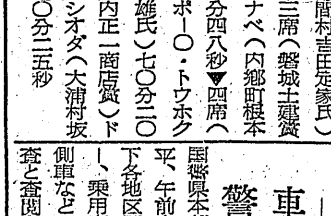 間村吉田定家氏)
三席(磐城土建賞
ナベ(内郷町根本
分四八秒▼四席(
ポーО・トウホク
雄氏)七〇分二〇
内正一商店賞)ド
シオダ(大浦村坂
〇分二五秒
車
警
国警県本
平、午前
下各地区
ー、乗用
側車など
査と査閲